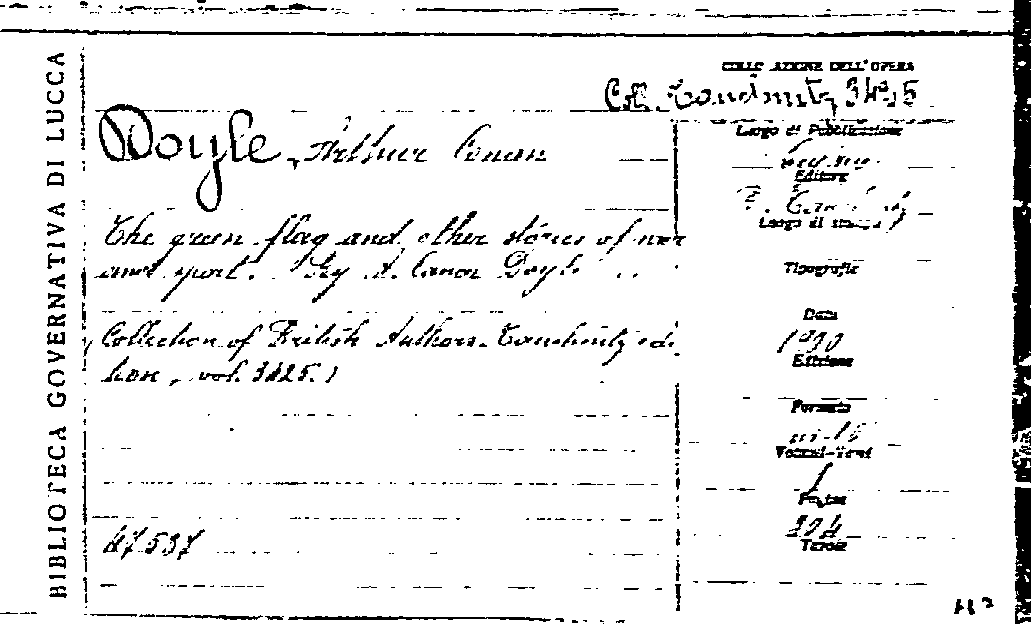 BIBLIOTECA GOVERNATIVA DI LUCCA
COLLOCAZIONE DELL'OPERA
Coll. Tauchnitz 3425
Doyle, Arthur Conan
The green flag and other stories of war
and sport. By A. Conan Doyle
Collection of British Authors. Tauchnitz edi
tion, vol. 3425.)
47537
Luogo di Pubblicazione
Editore
B. Tauchnitz
Luogo di stampa
Tipografia
Data
Edizione
Formato
in-16
Volumi-Tomi
1
Pagine
Tavole